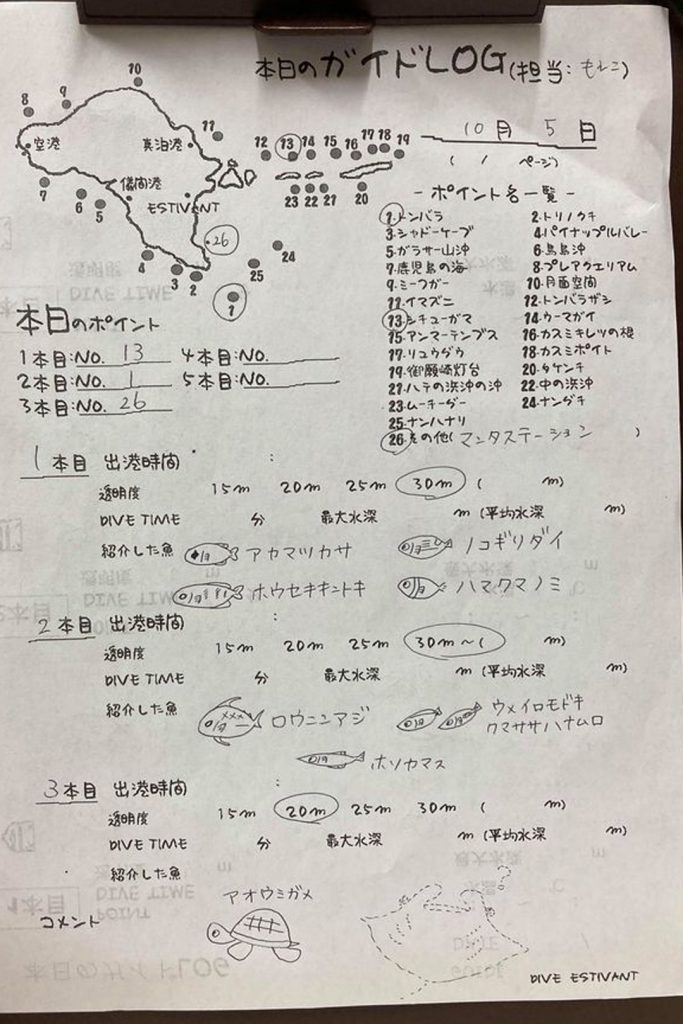 本日のガイドLOG(担当:もれこ)
10月 5日
( / ページ)
8 9 10 11 12 13 14 15 16 17 18 19
空港 真泊港
儀間港
ESTIVANT
7 6 5 4 3 2 1 26 25 24 23 22 21 20
-ポイント名一覧-
1.トンバラ 2.トリノクチ
3.シャドーケーブ 4.パイナップルバレー
5.ガラサー山沖 6.鳥島沖
7.鹿児島の海 8.プレアクエリアム
9.ミーフガー 10.月面空間
11.イマズニ 12.トンバラザシ
13.シチューガマ 14.ウーマガイ
15.アンマーテンプス 16.カスミキレツの根
17.リュウグウ 18.カスミポイト
19.御願崎灯台 20.タケンチ
21.ハテの浜沖の沖 22.中の浜沖
23.ムーチーグー 24.ナングチ
25.ナンハナリ
26.その他(マンタステーション )
本日のポイント
1本目:NO. 13 4本目:NO.
2本目:NO. 1 5本目:NO.
3本目:NO. 26
1本目 出港時間 :
透明度 15m 20m 25m 30m ( m)
DIVE TIME 分 最大水深 m (平均水深 m)
紹介した魚 アカマツカサ ノコギリダイ
ホウセキキントキ ハマクマノミ
2本目 出港時間 :
透明度 15m 20m 25m 30m~( m)
DIVE TIME 分 最大水深 m (平均水深 m)
紹介した魚 ロウニンアジ ウメイロモドキ
クマササハナムロ
ホソカマス
3本目 出港時間 :
透明度 15m 20m 25m 30m ( m)
DIVE TIME 分 最大水深 m (平均水深 m)
紹介した魚
アオウミガメ
コメント
DIVE ESTIVANT